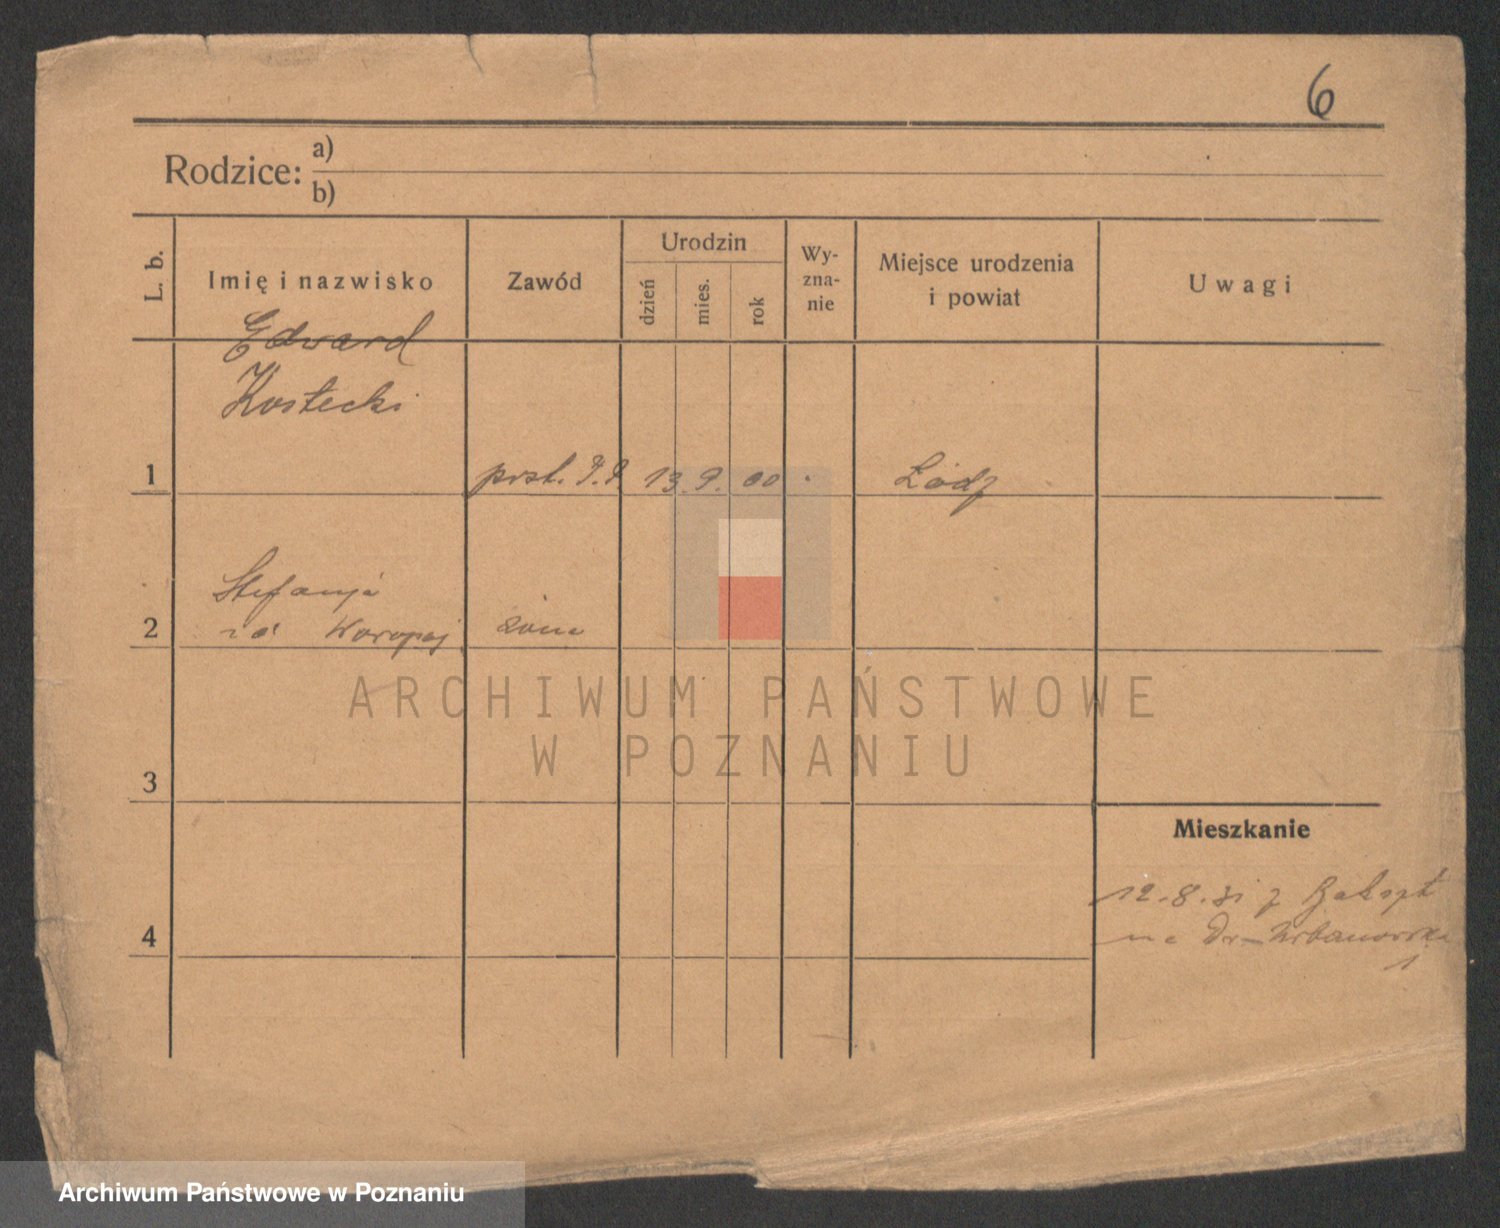 6
Rodzice: a)
b)
L. b. Imię i nazwisko Zawód Urodzin dzień mies. rok Wy-zna-nie Miejsce urodzenia i powiat Uwagi
Edward
Kostecki
1 post. P.P. 13. 9. 00 Łódź
Stefanja
2 Woropaj żona
ARCHIWUM PAŃSTWOWE
W POZNANIU
3
Mieszkanie
12.8.31 z
4 na Dr-Urbanowska
1
Archiwum Państwowe w Poznaniu